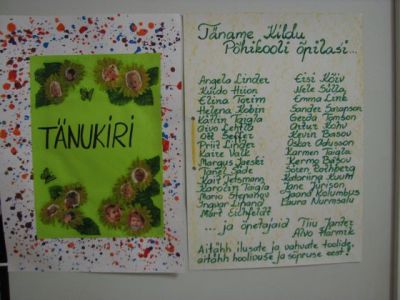 TÄNUKIRI
Täname Kildu
Põhikooli õpilasi...
Angela Linder
Küldo Hiion
Elina Toxim
Helena Robin
Kätlin Taigla
Oivo Lehtla
Ott Seiler
Priit Linder
Kaire Valk
Margus Jaeski
Janel Säde
Kait Helsmann
Karolin Taigla
Mario Stepanov
Ingvar Linang
Märt Eichfeldt
Eisi Kõiv
Nele Sülla
Emma Link
Sander Saranson
Gerda Tomson
Artur Rohv
Kevin Basov
Oskar Odusson
Karmen Taigla
Kermo Basov
Sören Rothberg
Katarina Ruum
Jane Jürison
Jaana Kolumbus
Laura Nurmsalu
... ja õpetajaid Tiiu Janter
Aivo Harmik
Aitähh ilusate ja vahvate toolide,
aitähh hoolivuse ja sõpruse eest!